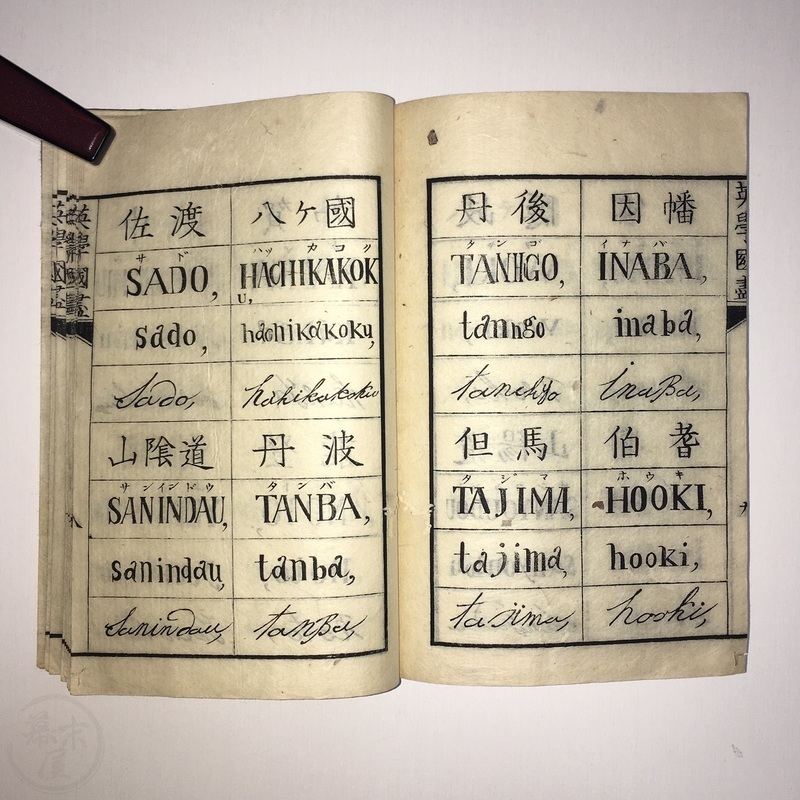 英學國盡
英學國盡
佐渡 八ヶ國
サド ハッカコク
SADO, HACHIKAKOK
U,
sado, hachikakoku,
sado, hahikakoku
山陰道 丹波
サンインドウ タンバ
SANINDAU, TANBA,
sanindau, tanba,
sanindau, tanBa,
八
丹後 因幡
タンゴ イナバ
TANHGO, INABA,
tanngo inaba,
inaBa,
但馬 伯耆
タジマ ホウキ
TAJIMA, HOOKI,
tajima, hooki,
tasima, hooki,
英學國盡
九